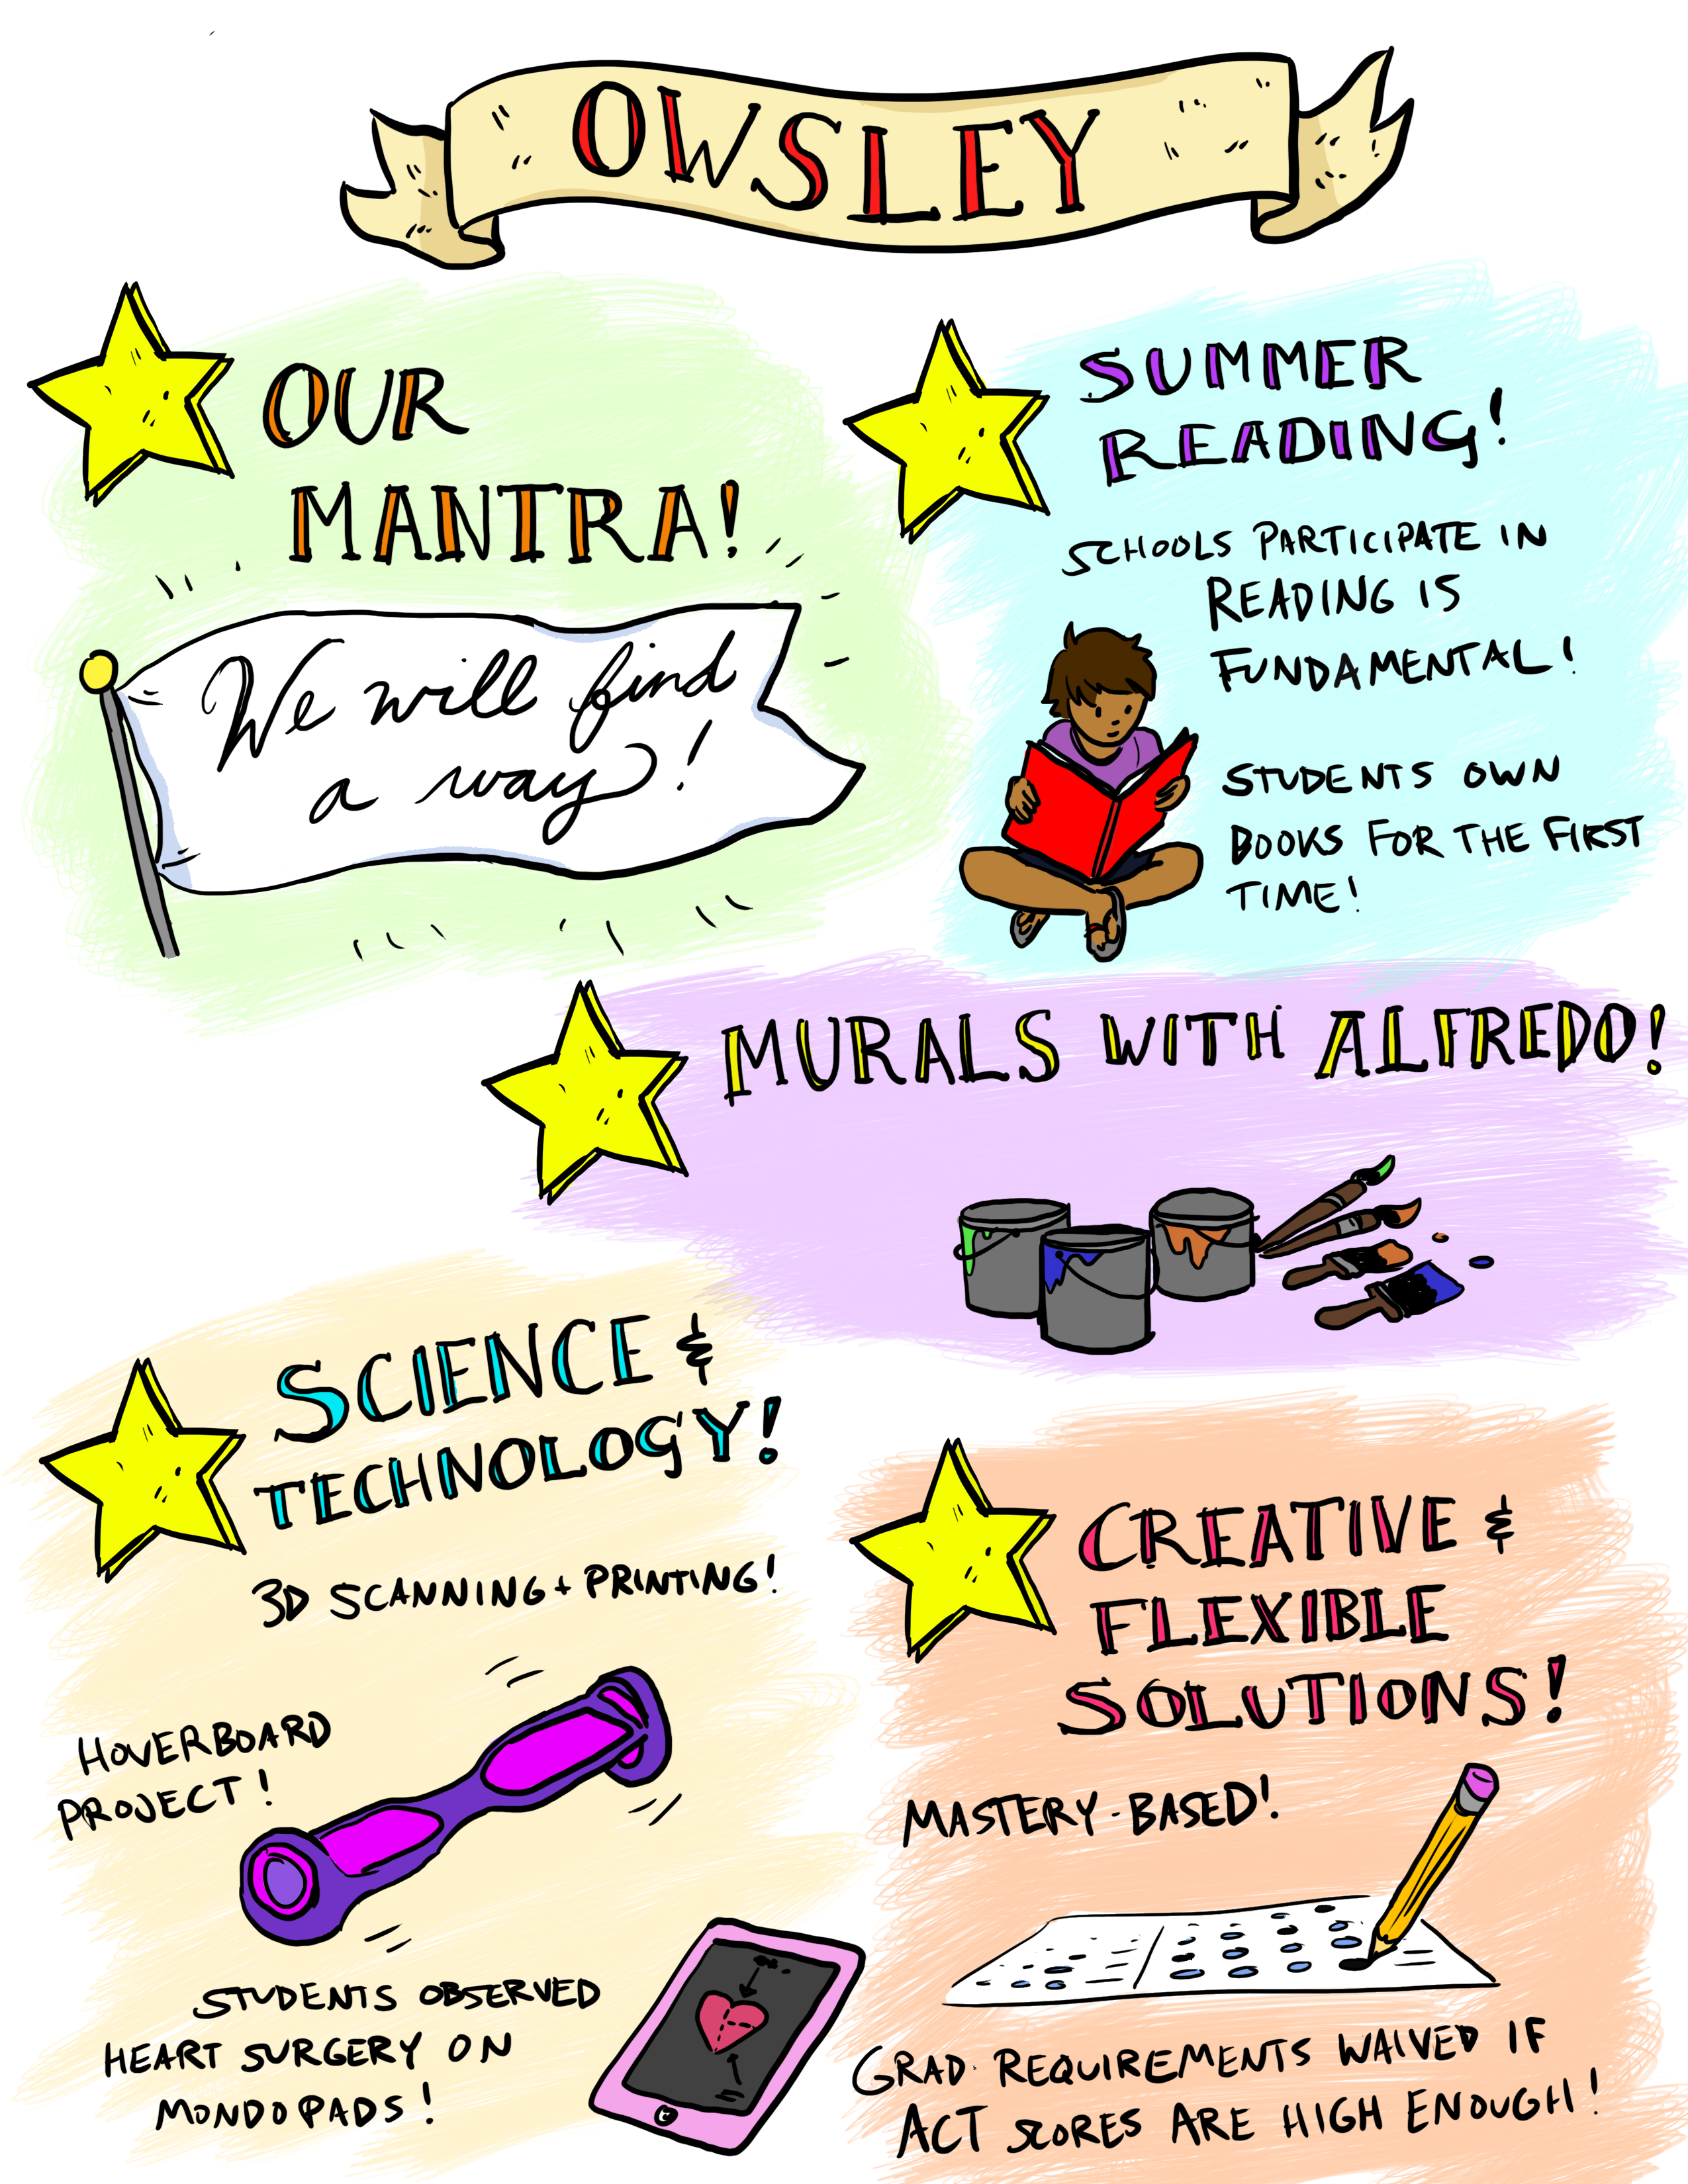 OWSLEY
OUR
MANTRA!
We will find
a way!
SUMMER
READING!
SCHOOLS PARTICIPATE IN
READING IS
FUNDAMENTAL!
STUDENTS OWN
BOOKS FOR THE FIRST
TIME!
MURALS WITH ALFREDO!
SCIENCE &
TECHNOLOGY!
3D SCANNING + PRINTING!
HOVERBOARD
PROJECT!
STUDENTS OBSERVED
HEART SURGERY ON
MONDOPADS!
CREATIVE &
FLEXIBLE
SOLUTIONS!
MASTERY-BASED!
GRAD. REQUIREMENTS WAIVED IF
ACT SCORES ARE HIGH ENOUGH!